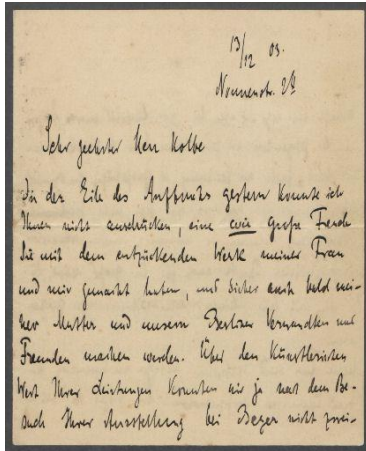 13/12 03.
Nonnenstr. 2B
Sehr geehrter Herr Kolbe
In der Eile des Aufbruchs gestern konnte ich
Ihnen nicht ausdrücken, eine wie große Freude
Sie mit dem entzückenden Werk meiner Frau
und mir gemacht haben, und sicher auch bald mei-
ner Mutter und unsern Berliner Verwandten und
Freunden machen werden. Über den künstlerischen
Wert Ihrer Leistungen konnten wir ja nach dem Be-
such Ihrer Ausstellung bei Beyer nicht zwei-